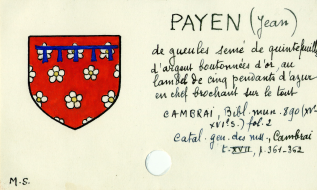 PAYEN (Jean)
de gueules semé de quintefeuilles
d'argent boutonnées d'or, au
lambel de cinq pendants d'azur
en chef brochant sur le tout
CAMBRAI, Bibl. mun. 890 (XVe-
XVIe s.) fol. 2
Catal. gén. des mss., Cambrai
t. XVII, p. 361-362
M-S.